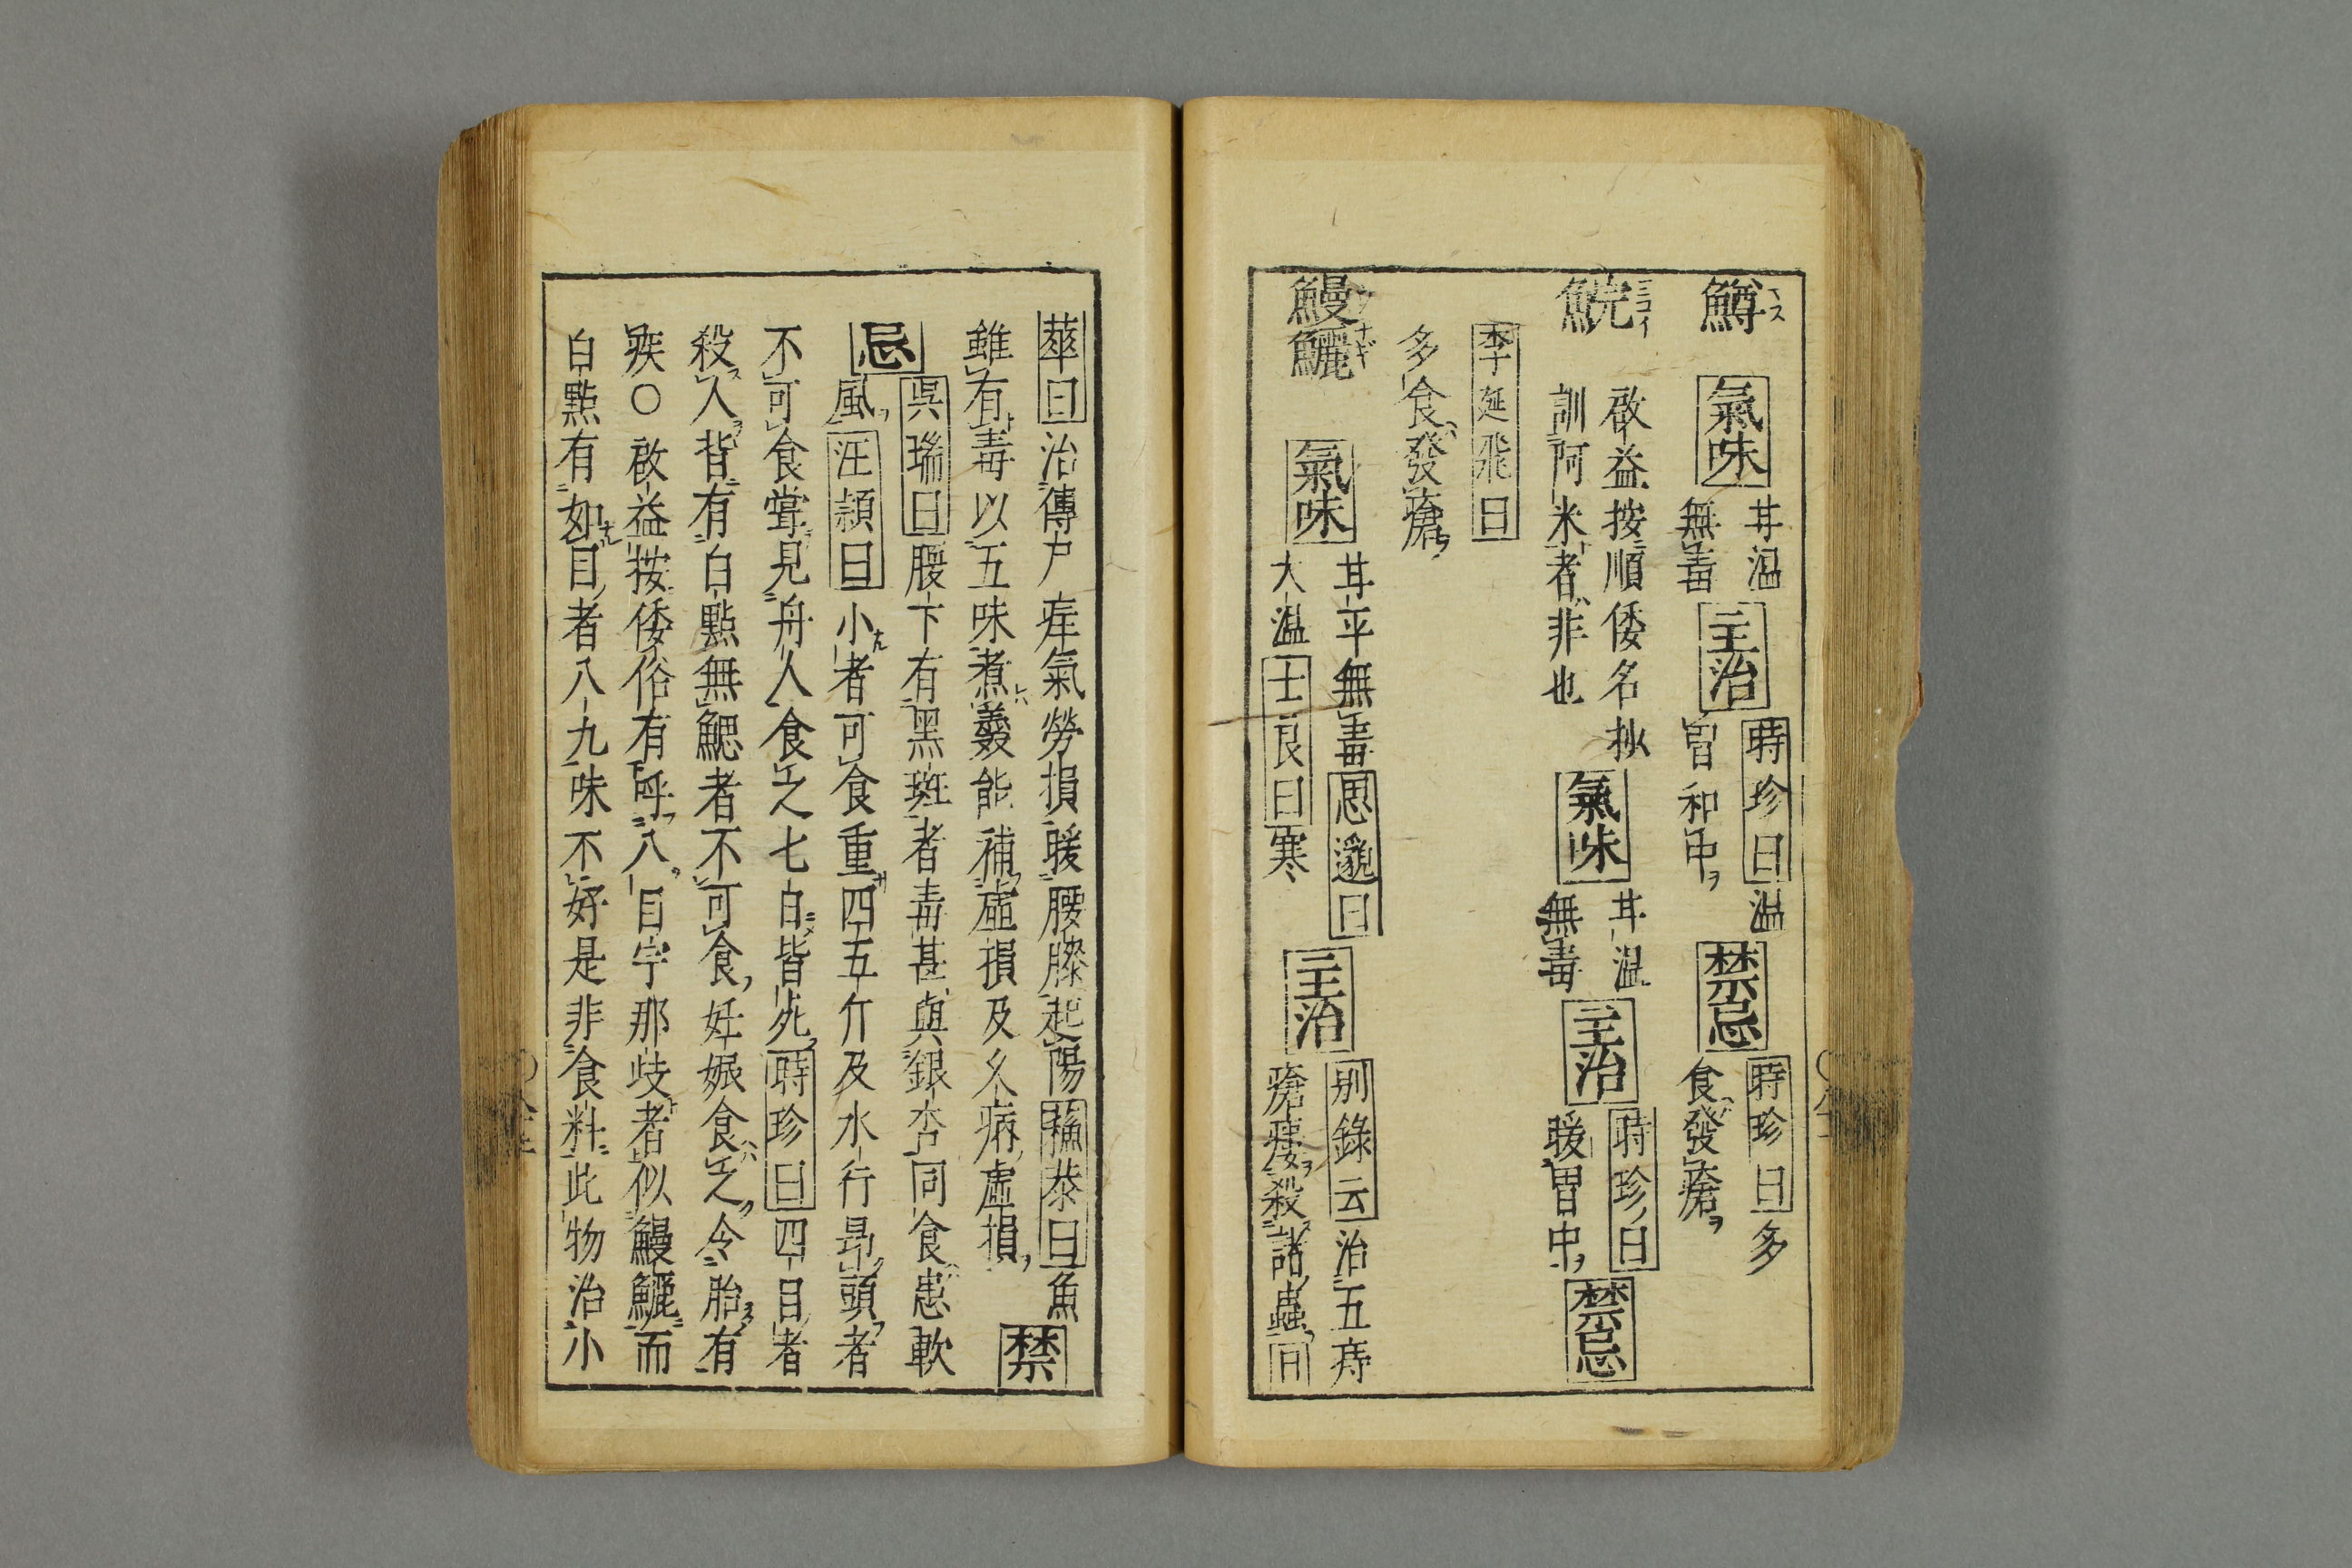 鱒 氣味 甘温無毒 主治 時珍曰温胃和中 禁忌 時珍曰多食發瘡
鯇 啟益按順倭名抄訓阿米者非也 氣味 甘温無毒 主治 時珍曰暖胃中 禁忌
李延飛曰
多食發瘡
鰻鱺 氣味 甘平無毒思邈曰大温士良曰寒 主治 别錄云治五痔瘡瘻殺諸蟲日
華曰治傳尸疰氣勞損暖腰膝起陽蘇恭曰魚
雖有毒以五味煮羹能補虛損及久病虛損 禁
忌 吳瑞曰腰下有黑斑者毒甚與銀杏同食患軟
風汪頴曰小者可食重四五斤及水行昂頭者
不可食嘗見舟人食之七白皆死時珍曰四目者
殺人背有白點無鰓者不可食妊娠食之令胎有
疾〇啟益按倭俗有呼八目宇那歧者似鰻鱺而
白點有如目者八九味不好是非食料此物治小